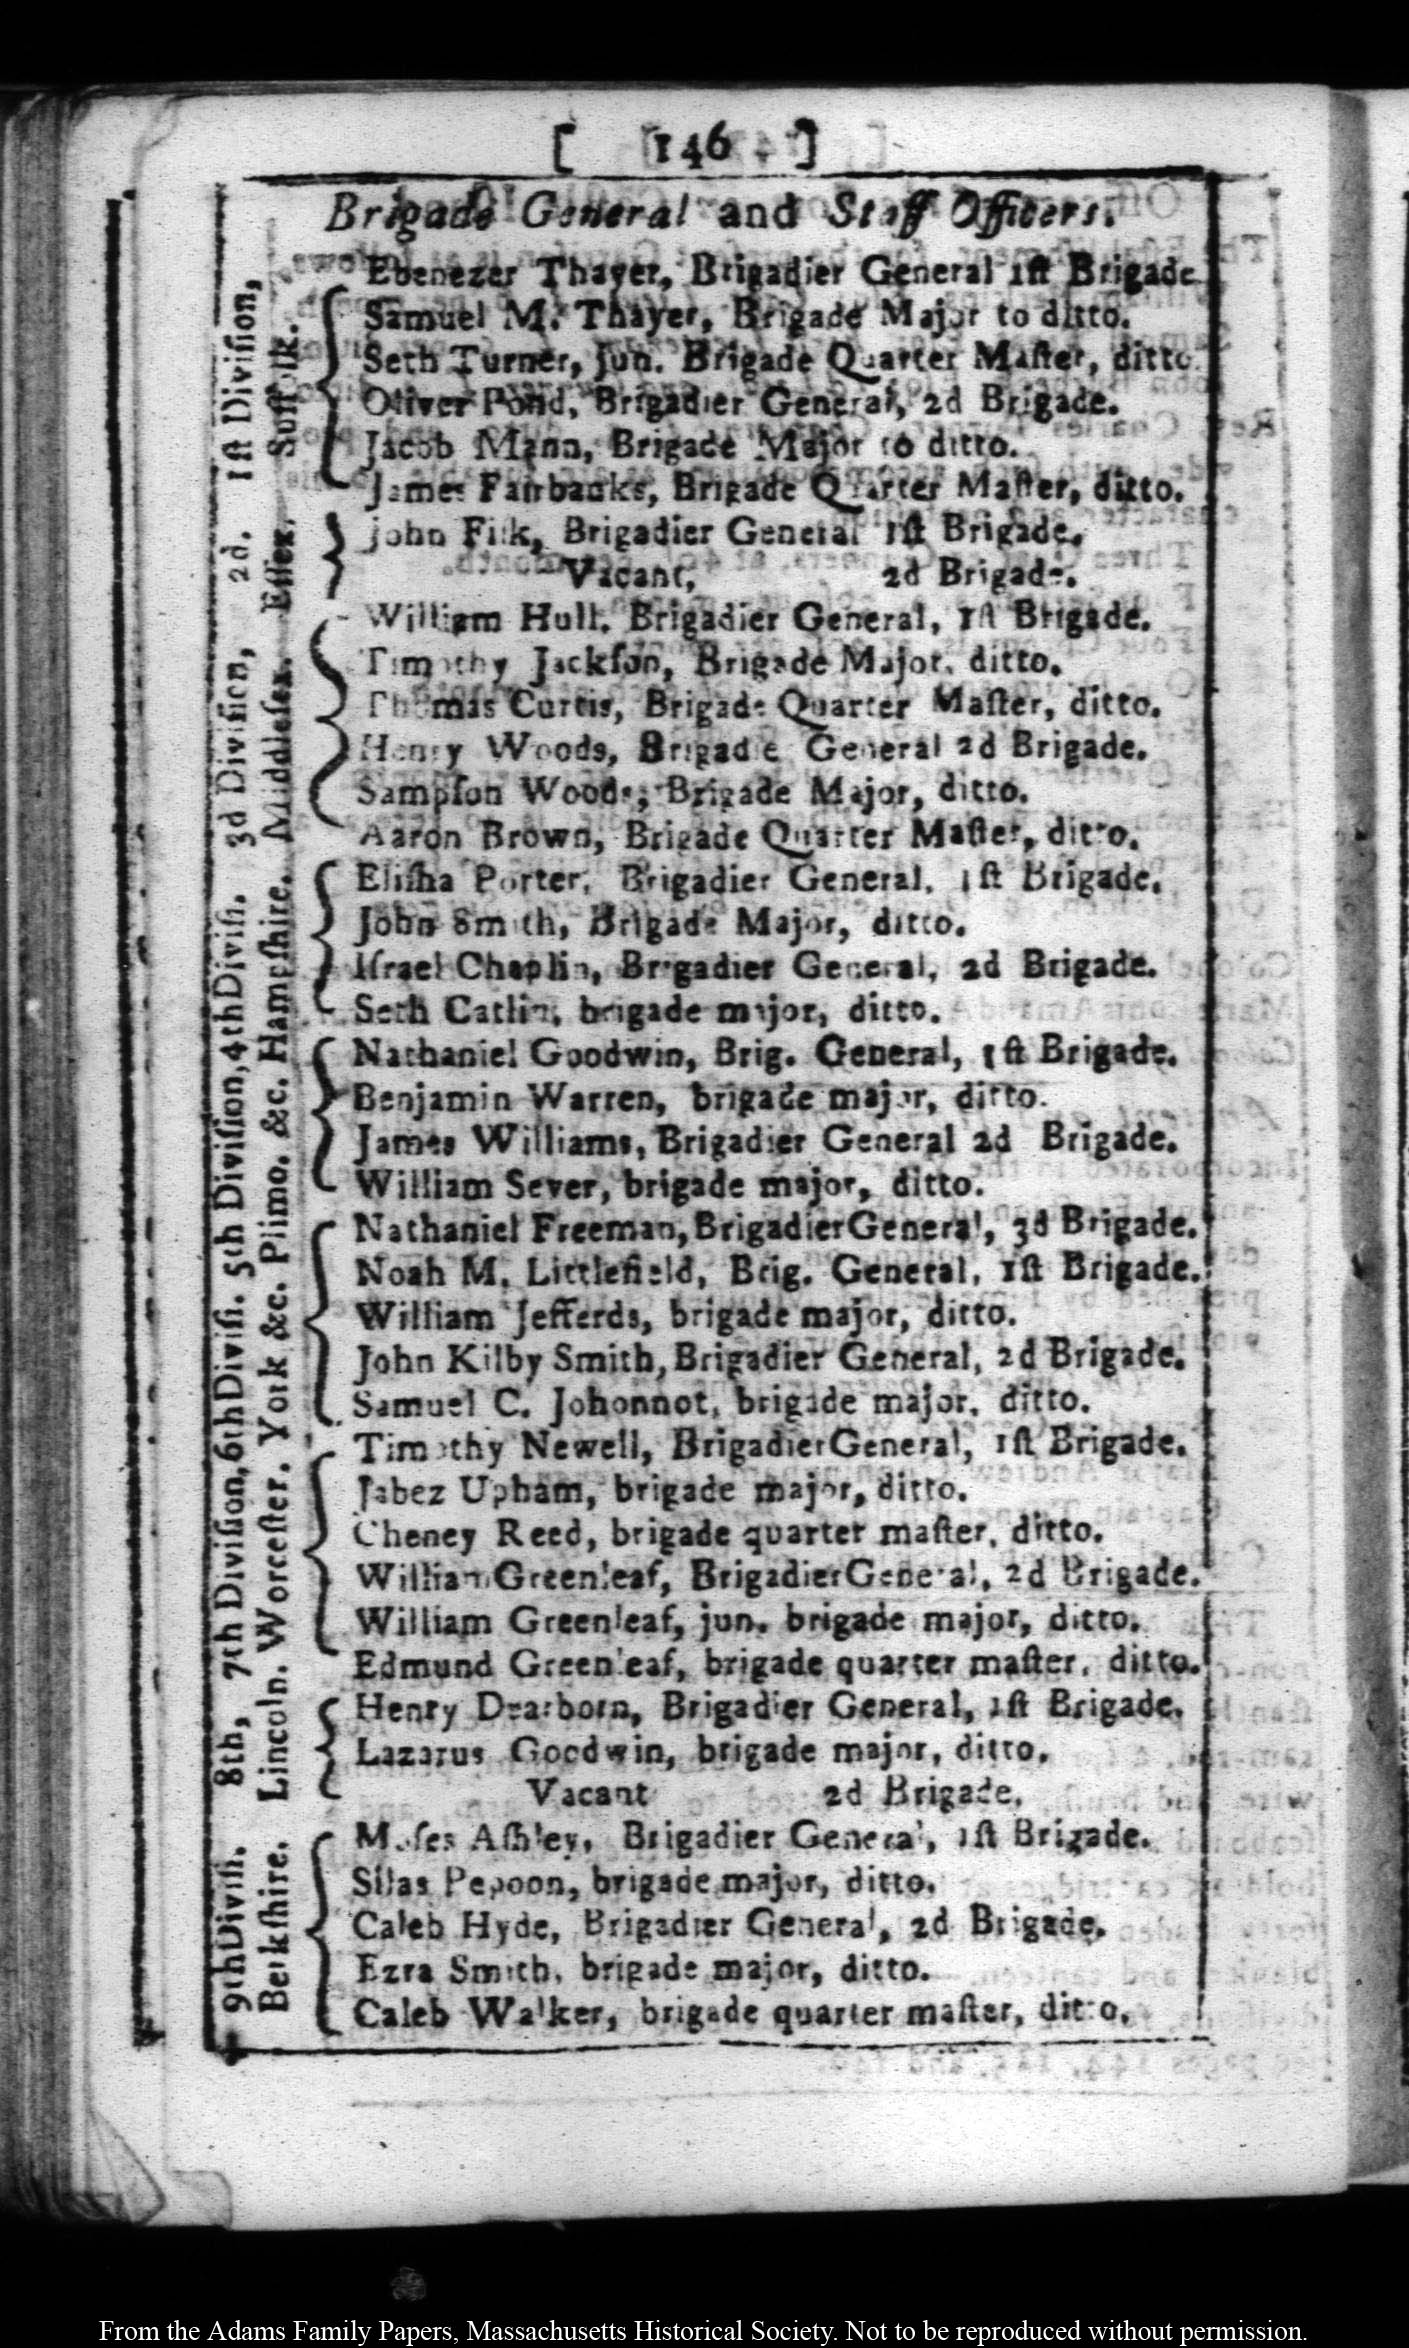 [ 146 ]
Brigade General and Staff Officers.
1ſt Diviſion,
Suffolk.
Ebenezer Thayer, Brigadier General 1ſt Brigade
Samuel M. Thayer, Brigade Major to ditto.
Seth Turner, jun. Brigade Quarter Maſter, ditto.
Oliver Pond, Brigadier General, 2d Brigade.
Jacob Mann, Brigade Major to ditto.
James Fairbanks, Brigade Quarter Maſter, ditto.
2d.
Eſſex.
John Fiſk, Brigadier General 1ſt Brigade.
Vacant, 2d Brigade.
3d Diviſion,
Middleſex.
William Hull, Brigadier General, 1ſt Brigade.
Timothy Jackſon, Brigade Major, ditto.
Thomas Curtis, Brigade Quarter Maſter, ditto.
Henry Woods, Brigadie General 2d Brigade.
Sampſon Woods, Brigade Major, ditto.
Aaron Brown, Brigade Quarter Maſter, ditto.
4th Diviſi.
Hampſhire.
Eliſha Porter, Brigadier General, 1ſt Brigade.
John Smith, Brigade Major, ditto.
Iſrael Chaplin, Brigadier General, 2d Brigade.
Seth Catlin, brigade major, ditto.
5th Diviſion,
Plimo. &c.
Nathaniel Goodwin, Brig. General, 1ſt Brigade.
Benjamin Warren, brigade major, ditto.
James Williams, Brigadier General 2d Brigade.
William Sever, brigade major, ditto.
Nathaniel Freeman, Brigadier General, 3d Brigade.
6th Diviſi.
York &c.
Noah M. Littlefield, Brig. General, 1ſt Brigade.
William Jefferds, brigade major, ditto.
John Kilby Smith, Brigadier General, 2d Brigade.
Samuel C. Johonnot, brigade major, ditto.
7th Diviſion,
Worceſter.
Timothy Newell, Brigadier General, 1ſt Brigade.
Jabez Upham, brigade major, ditto.
Cheney Reed, brigade quarter maſter, ditto.
William Greenleaf, Brigadier General, 2d Brigade.
William Greenleaf, jun. brigade major, ditto.
Edmund Greenleaf, brigade quarter maſter, ditto.
8th,
Lincoln.
Henry Dearborn, Brigadier General, 1ſt Brigade.
Lazarus Goodwin, brigade major, ditto.
Vacant 2d Brigade.
9th Diviſi.
Berkſhire.
Moſes Aſhley, Brigadier General, 1ſt Brigade.
Silas Pepoon, brigade major, ditto.
Caleb Hyde, Brigadier General, 2d Brigade.
Ezra Smith, brigade major, ditto.
Caleb Walker, brigade quarter maſter, ditto.
From the Adams Family Papers, Massachusetts Historical Society. Not to be reproduced without permission.